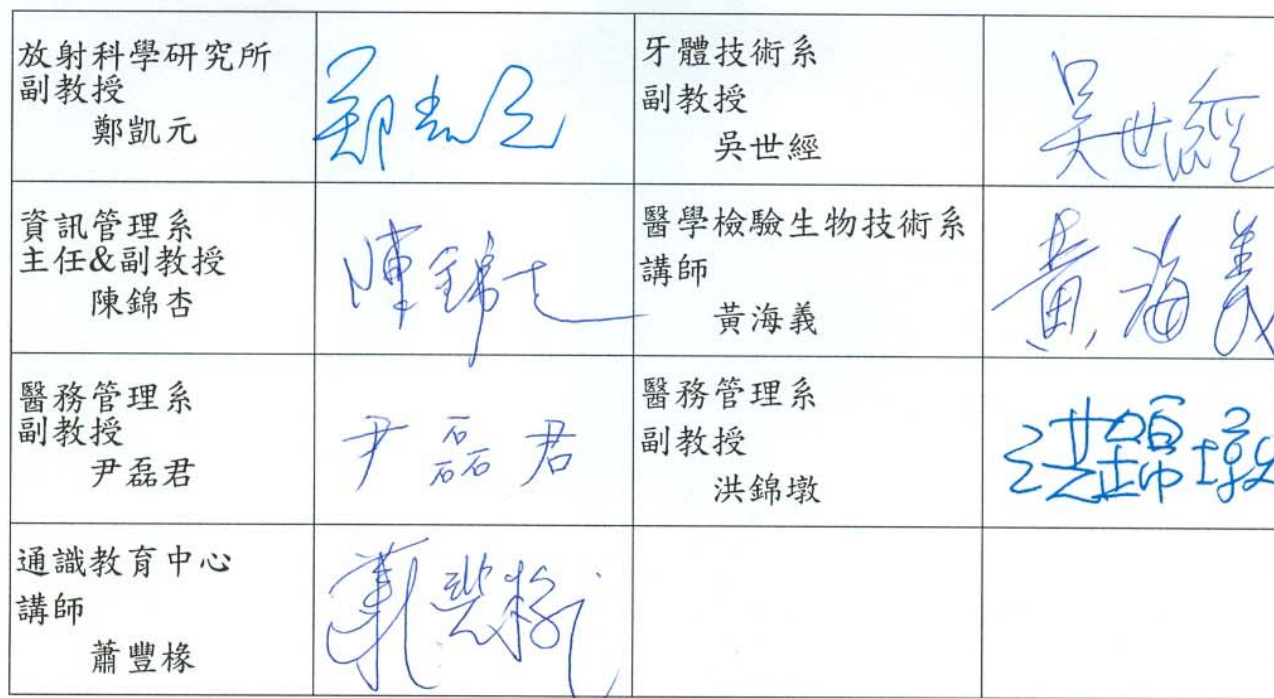 放射科學研究所
副教授
鄭凱元
鄭凱元
牙體技術系
副教授
吳世經
吳世經
資訊管理系
主任&副教授
陳錦杏
陳錦杏
醫學檢驗生物技術系
講師
黃海義
黃海義
醫務管理系
副教授
尹磊君
尹磊君
醫務管理系
副教授
洪錦墩
洪錦墩
通識教育中心
講師
蕭豐椽
蕭豐椽